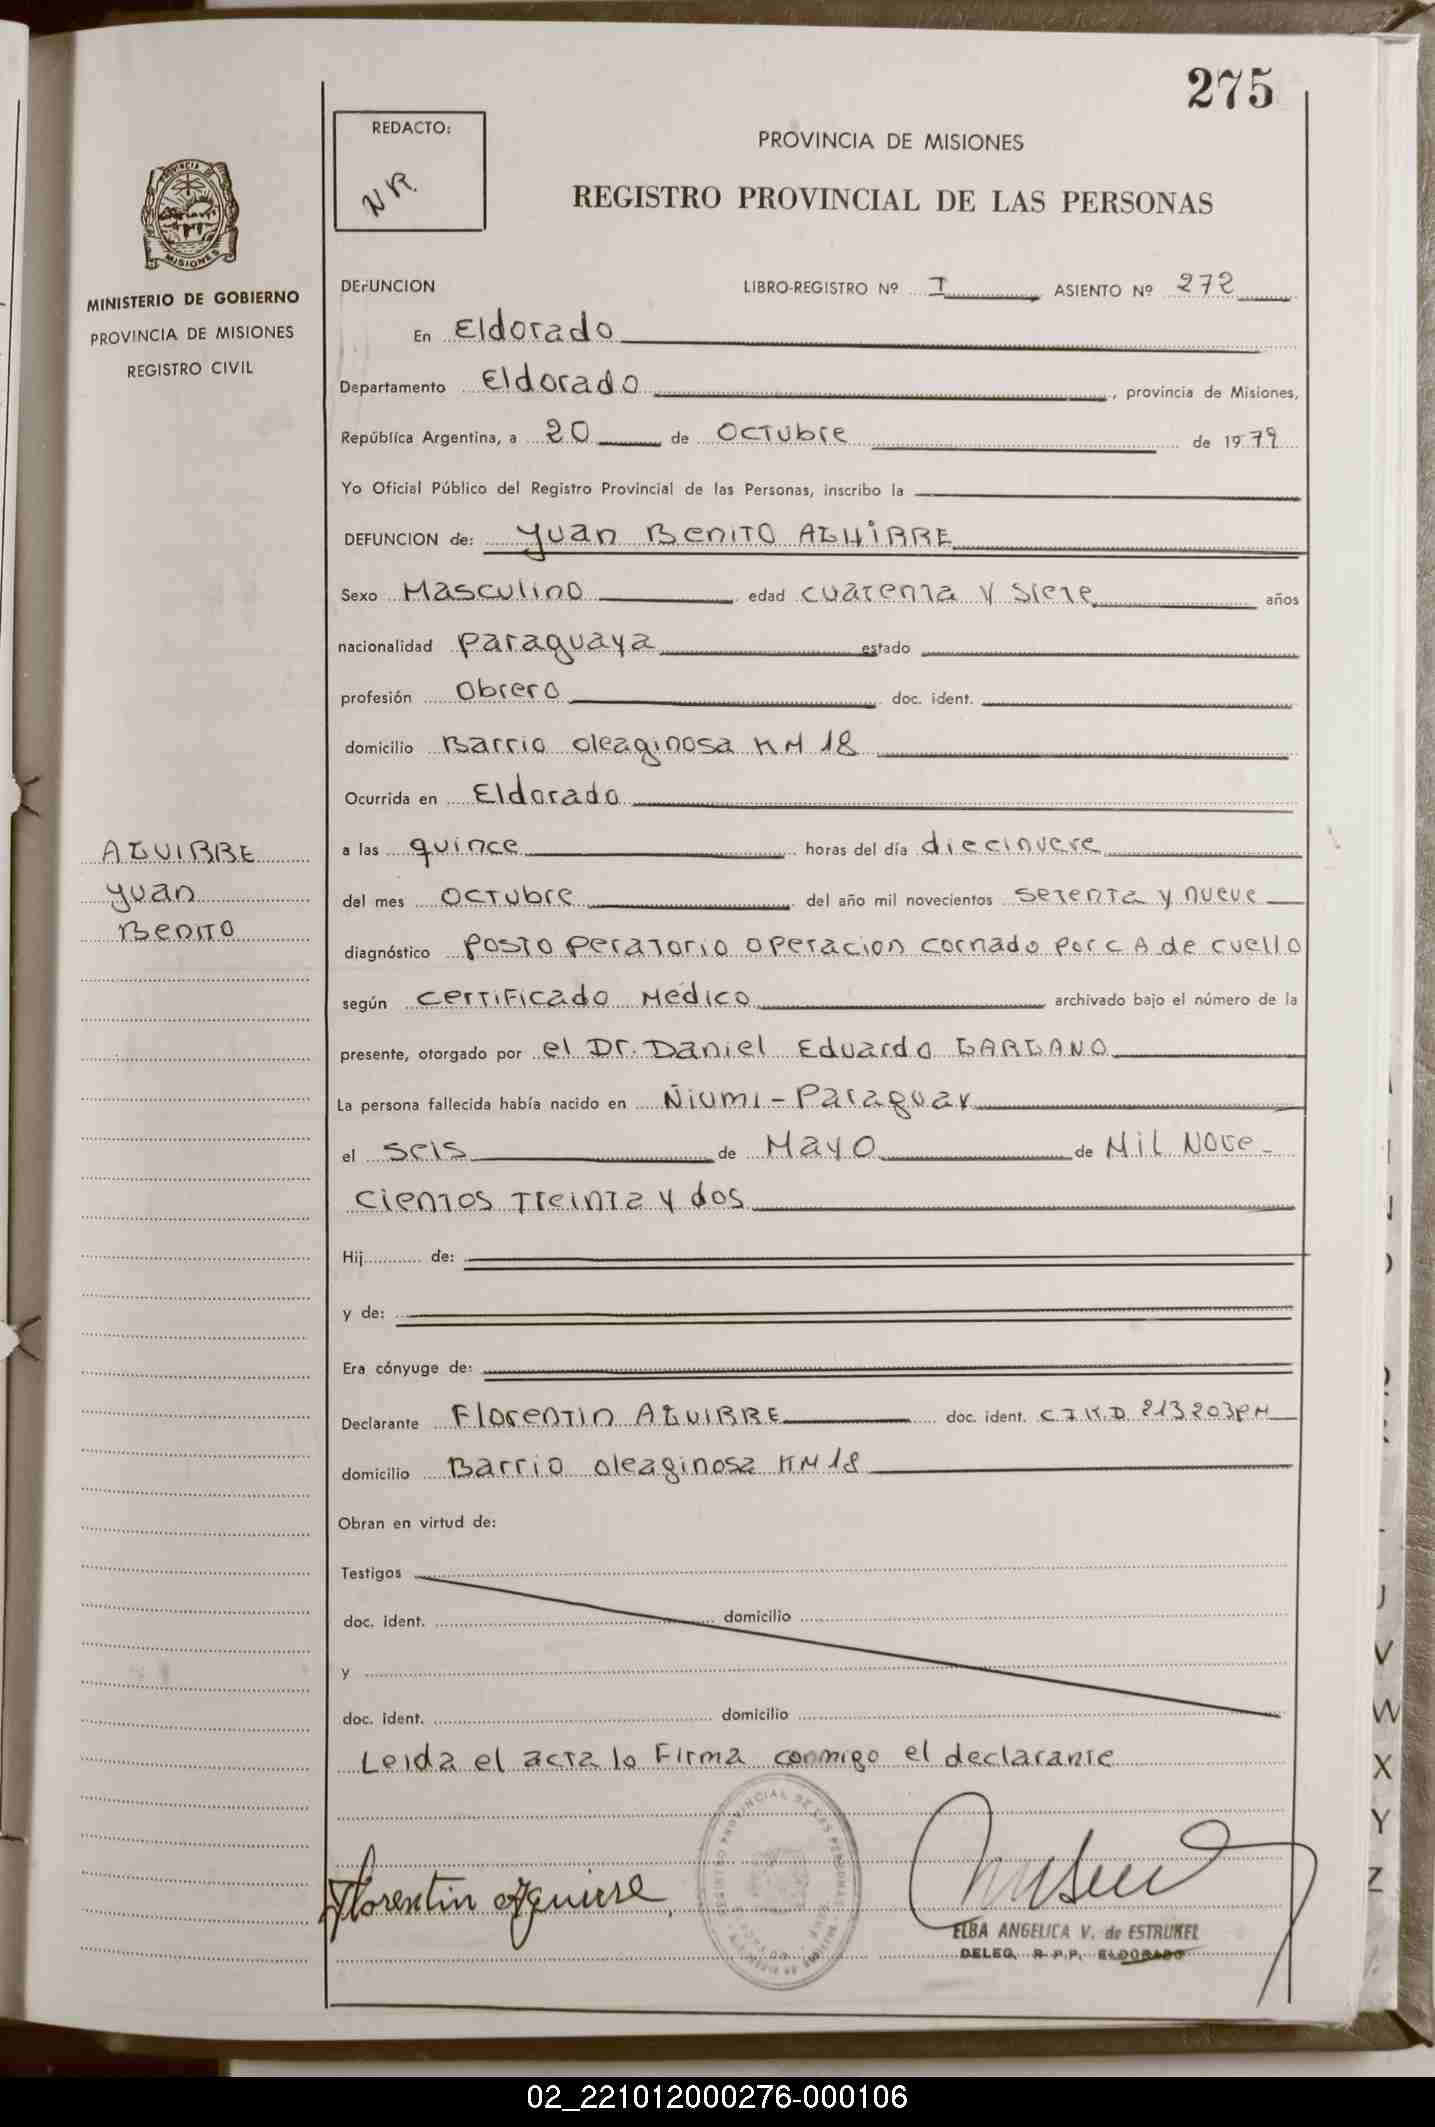 275
REDACTO:
NR
PROVINCIA DE MISIONES
REGISTRO PROVINCIAL DE LAS PERSONAS
PROVINCIA DE
MISIONES
MINISTERIO DE GOBIERNO
PROVINCIA DE MISIONES
REGISTRO CIVIL
DEFUNCION LIBRO-REGISTRO Nº I ASIENTO Nº 272
En Eldorado
Departamento Eldorado, provincia de Misiones,
República Argentina, a 20 de Octubre de 1979
Yo Oficial Público del Registro Provincial de las Personas, inscribo la
DEFUNCION de: Yuan Benito AGUIRRE
Sexo Masculino edad cuarenta y siete años
nacionalidad paraguaya estado
profesión Obrero doc. ident.
domicilio Barrio oleaginosa KM 18
Ocurrida en Eldorado
a las quince horas del día diecinueve
del mes Octubre del año mil novecientos setenta y nueve
diagnóstico Posto peratorio operacion cornado por C A de cuello
según certificado Medico archivado bajo el número de la
presente, otorgado por el Dr. Daniel Eduardo GARGANO
La persona fallecida había nacido en Ñiumi - Paraguay
el seis de Mayo de Mil Nove-
cientos treinta y dos
Hij de:
y de:
Era cónyuge de:
Declarante Florentin AGUIRRE doc. ident. C.I.K.D. 213203PM
domicilio Barrio oleaginosa KM 18
Obran en virtud de:
Testigos
doc. ident. domicilio
y
doc. ident. domicilio
Leida el acta lo Firma conmigo el declarante
AGUIRRE
Yuan
Benito
Florentin Aguirre
REGISTRO PROVINCIAL DE LAS PERSONAS
ELBA ANGELICA V. de ESTRUKEL
DELEG. R.P.P. ELDORADO
U
V
W
X
Y
Z
02_221012000276-000106